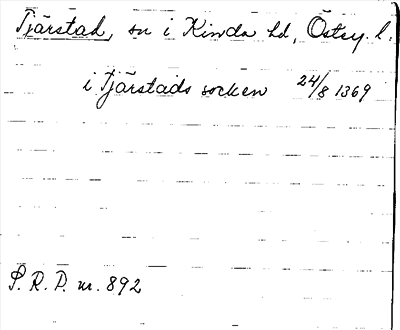 Tjärstad, sn i Kinda hd, Östey. l.
i Tjärstads socken 24/8 1369
S. R. P. nr. 892